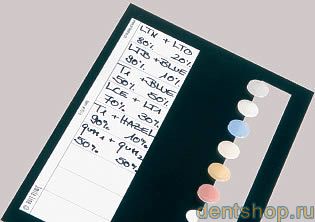 LTN + LTO
80% 20%
LTD + BLUE
90% 10%
T1 + BLUE
50% 50%
LCE + LT1
70% 30%
T1 + HAZEL
90% 10%
50% 50%
dentshop.ru